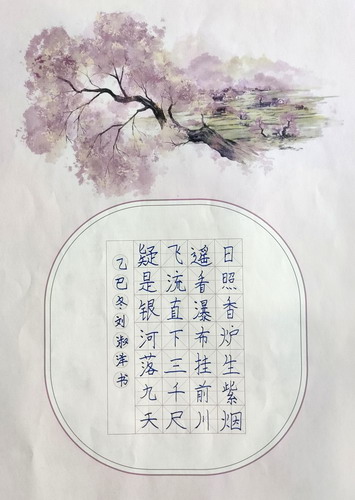 日照香炉生紫烟
遥看瀑布挂前川
飞流直下三千尺
疑是银河落九天
乙巳冬刘淑萍书